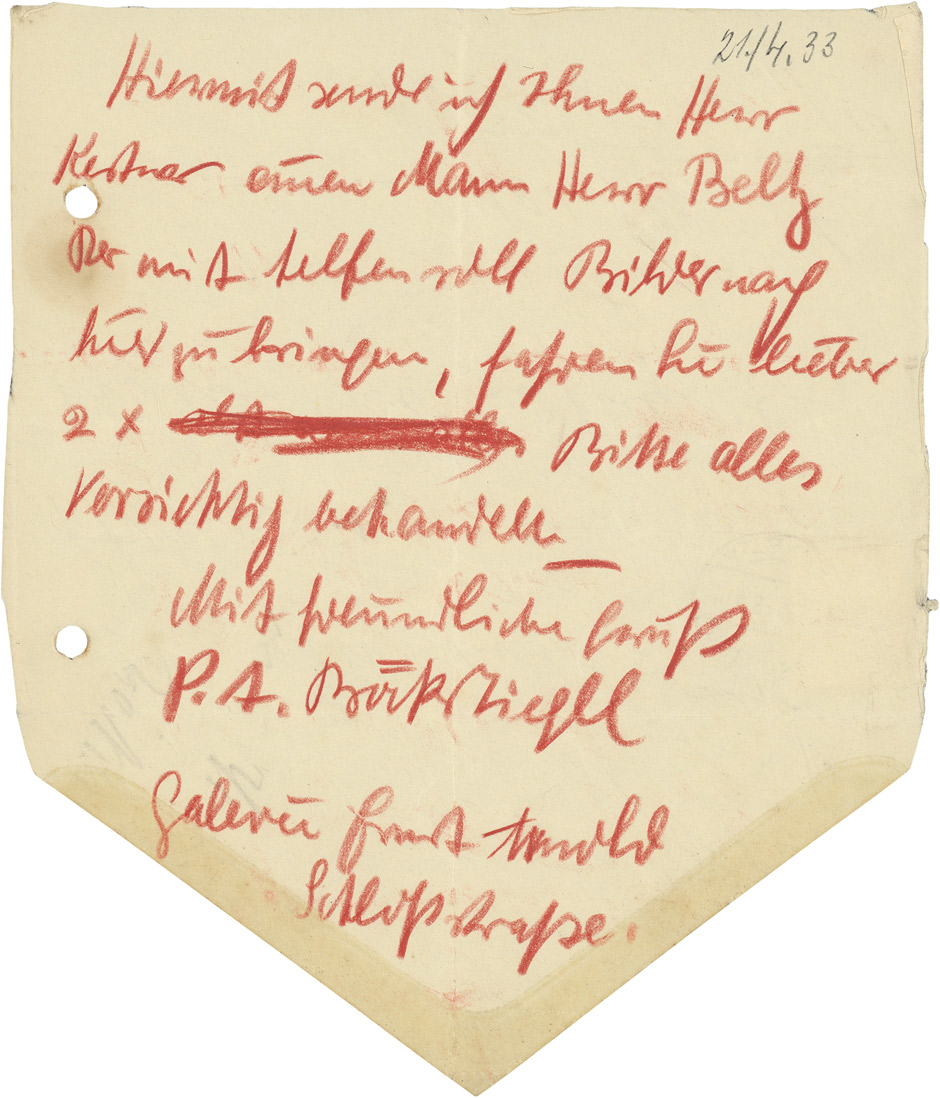 21./4.33
Hiermit sende ich Ihnen Herr
Kestner einen Mann Herr Beltz
Der mit helfen soll Bilder nach
hier zu bringen, fahren Sie lieber
2 x Bitte alles
Vorsichtig behandeln
Mit freundliche Gruß
P. A. Böckstiegel
Galerie Ernst Arnold
Schloßstraße.